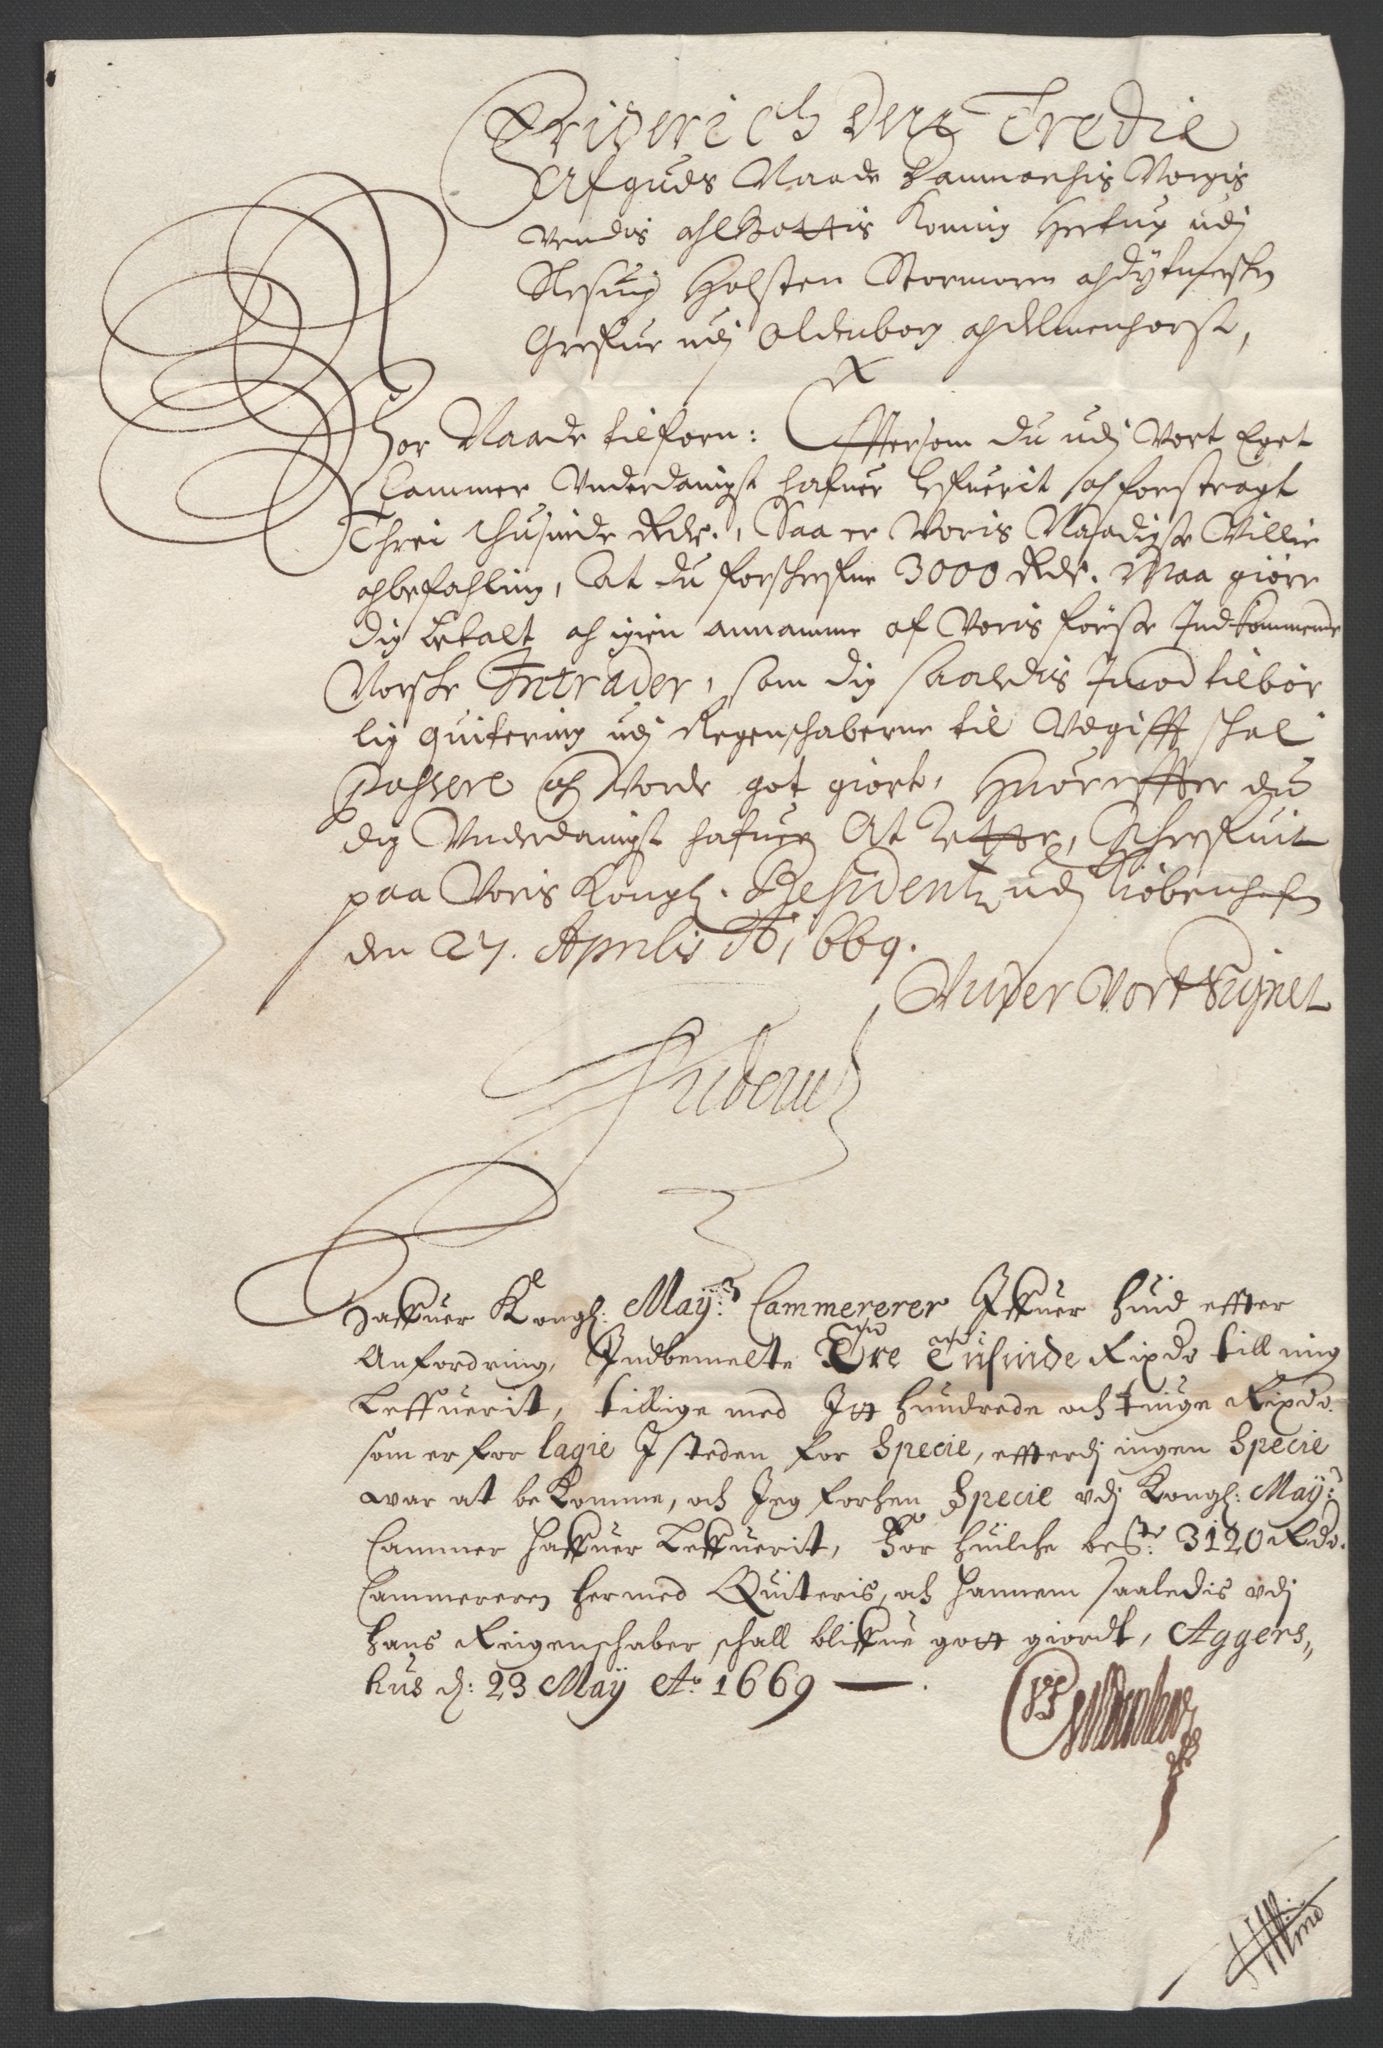 Friderich den Tredie
Af Guds Naade Danmarchis Norgis
Vendis och Gottis Koning Hertug udj
Slesuig Holsten Stormarn och Dytmersken
Grefue udj Oldenborg och Delmenhorst,
Vor Naade tilforn: Efftersom du udj Vort Eget
Cammer Underdanigst hafuer lefuerit och forstragt
Threi thusinde Rdr., Saa er Voris Naadigste Villie
och befahling, At du forschrefne 3000 Rdr. Maa giøre
dig betalt och igien annamme af Voris förste Indkommende
Norske Intrader, som dig saaledis Imod tilbør
lig quitering udj Regenschaberne til Udgifft schal
passere och Vorde got giort, Huorefter du
dig Underdanigst hafuer At rette, Schrefuit
paa Voris Kongl. Residentz udj Kiøbenhafn
den 27. Aprilis Ao 1669.
Under Vort Signet
Friderich
Haffuer Kongl: May:s Cammererer Iffuer Huid effter
Anfordring, Indbemelte Tre Tusinde Rixdr till mig
Leffuerit, tillige med Itt hundrede och tiuge Rixdr.
som er for lagie J steden for Specie, efterdj ingen Specie
war at bekomme, och Jeg forhen Specie udj Kongl: May:s
Cammer haffuer Leffuerit, For huilche be:te 3120 Rdr.
Cammereren hermed Quiteris, och hannem saaledis udj
hans Reigenschaber schall bliffue gott giordt, Aggers,,
hus d: 23 May Ao 1669